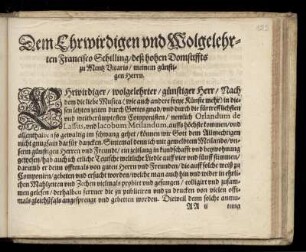 Dem Ehrwirdigen vnd Wolgelehr-
ten Francisco Schilling/ deß hohen Domstiffts
zu Mentz Vicario/ meinem günsti-
gen Herrn.
EHrwirdiger/ wolgelehrter/ günstiger Herr/ Nach
dem die liebe Musica (wie auch andere freye Künste mehr) in die-
sen letzten zeiten starck und durch die fürtrefflichsten
vnd weitberümpteste Componisten/ nemlich Orlandum de
Lassus, vnd Iacobum Meilandum, auffs höchste kommen/ vnd
allenthalben gewaltig im schwang gehet/ können wir Gott dem Allmechtigen
nicht gnugsam darfür dancken: Sintemal denn ich mit gewesenen Meilando/
sem günstigen Herren vnd Freundt/ ein zeitlang in kundschafft vnd beywohnung
gewesen/ hab auch etliche Teutsche weltliche Lieder auff vier vnd fünff stimmen/
darumb er denn offtmals von guten Herrn vnd Freunden/ die auff solche weiß zu
Componiern/ gebeten vnd ersucht worden/ welche man auch hin vnd wider in ehrli-
chen Malzeyten vnd Zechen vielmals probirt vnd gesungen/ colligirt vnd zusam-
men gelesen/ derhalben ferrner die zu publiciern vnd zu drucken von vielen offt-
mals gleichsfals angesprenget vnd gebeten worden. Dieweil denn solche anmu-
AA ij